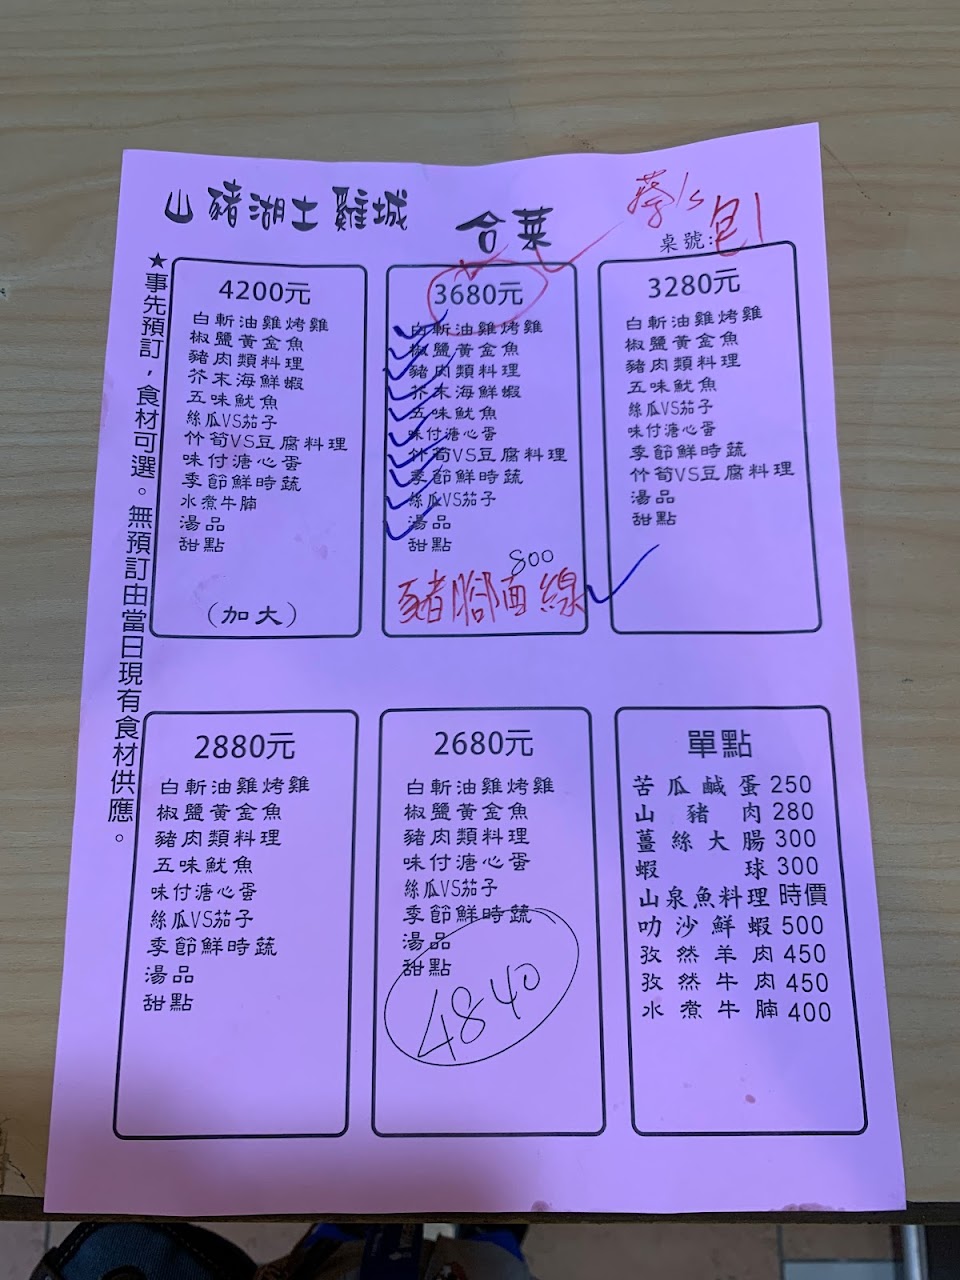 山豬湖土雞城
合菜
蔡小
桌號:包1
★事先預訂，食材可選。無預訂由當日現有食材供應。
4200元
白斬油雞烤雞
椒鹽黃金魚
豬肉類料理
芥末海鮮蝦
五味魷魚
絲瓜VS茄子
竹筍VS豆腐料理
味付溏心蛋
季節鮮時蔬
水煮牛腩
湯品
甜點
（加大）
3680元
白斬油雞烤雞
椒鹽黃金魚
豬肉類料理
芥末海鮮蝦
五味魷魚
味付溏心蛋
竹筍VS豆腐料理
季節鮮時蔬
絲瓜VS茄子
湯品
甜點
800
豬腳面線
3280元
白斬油雞烤雞
椒鹽黃金魚
豬肉類料理
五味魷魚
絲瓜VS茄子
味付溏心蛋
季節鮮時蔬
竹筍VS豆腐料理
湯品
甜點
2880元
白斬油雞烤雞
椒鹽黃金魚
豬肉類料理
五味魷魚
味付溏心蛋
絲瓜VS茄子
季節鮮時蔬
湯品
甜點
2680元
白斬油雞烤雞
椒鹽黃金魚
豬肉類料理
味付溏心蛋
絲瓜VS茄子
季節鮮時蔬
湯品
甜點
4840
單點
苦瓜鹹蛋250
山豬肉280
薑絲大腸300
蝦球300
山泉魚料理時價
叻沙鮮蝦500
孜然羊肉450
孜然牛肉450
水煮牛腩400